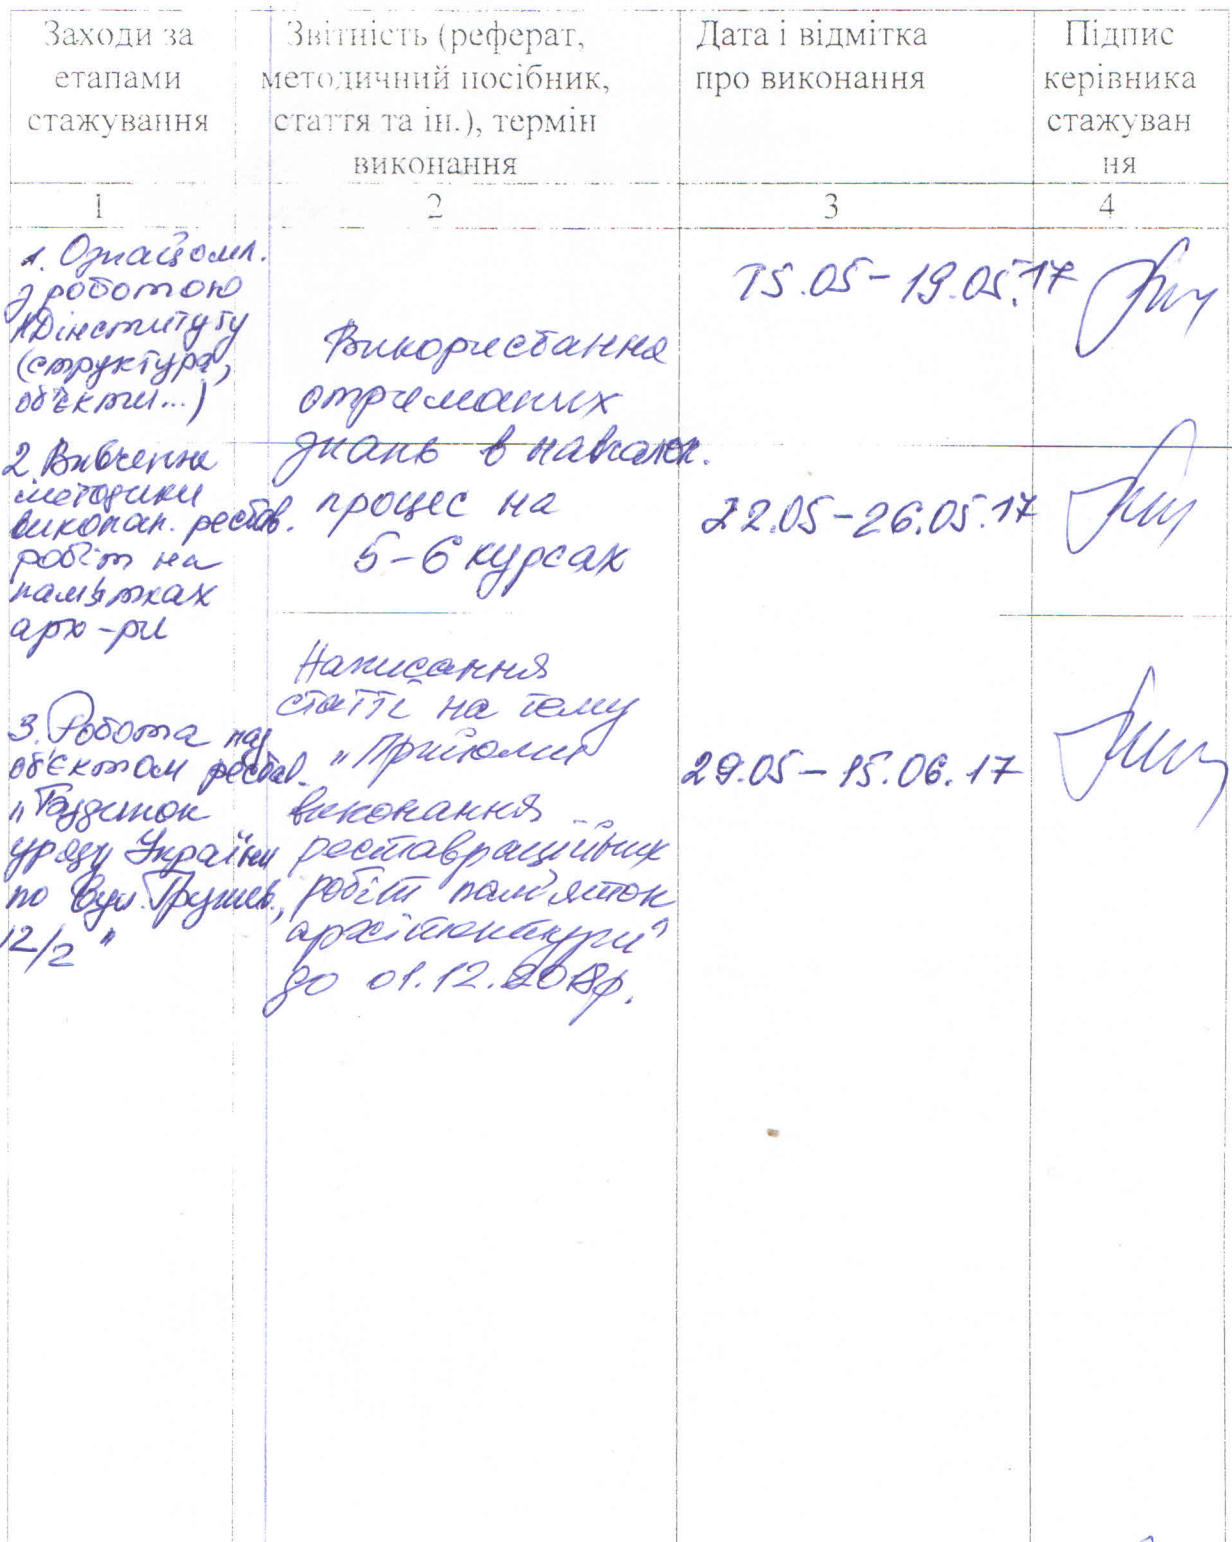 Заходи за
етапами
стажування
Звітність (реферат,
методичний посібник,
стаття та ін.), термін
виконання
Дата і відмітка
про виконання
Підпис
керівника
стажуван
ня
1
2
3
4
1. Ознайомл.
з роботою
інституту
(структура,
об'єкти...)
Використання
отриманих
знань в навчальн.
процес на
5-6 курсах
15.05-19.05.17
2. Вивчення
методики
виконан. реставр.
робіт на
пам'ятках
арх-ри
22.05-26.05.17
3. Робота над
об'єктом рестав.
"Будинок
уряду України
по вул. Грушев.,
12/2"
Написання
статті на тему
"Прийоми
виконання
реставраційних
робіт пам'яток
архітектури"
до 01.12.2018р.
29.05-15.06.17